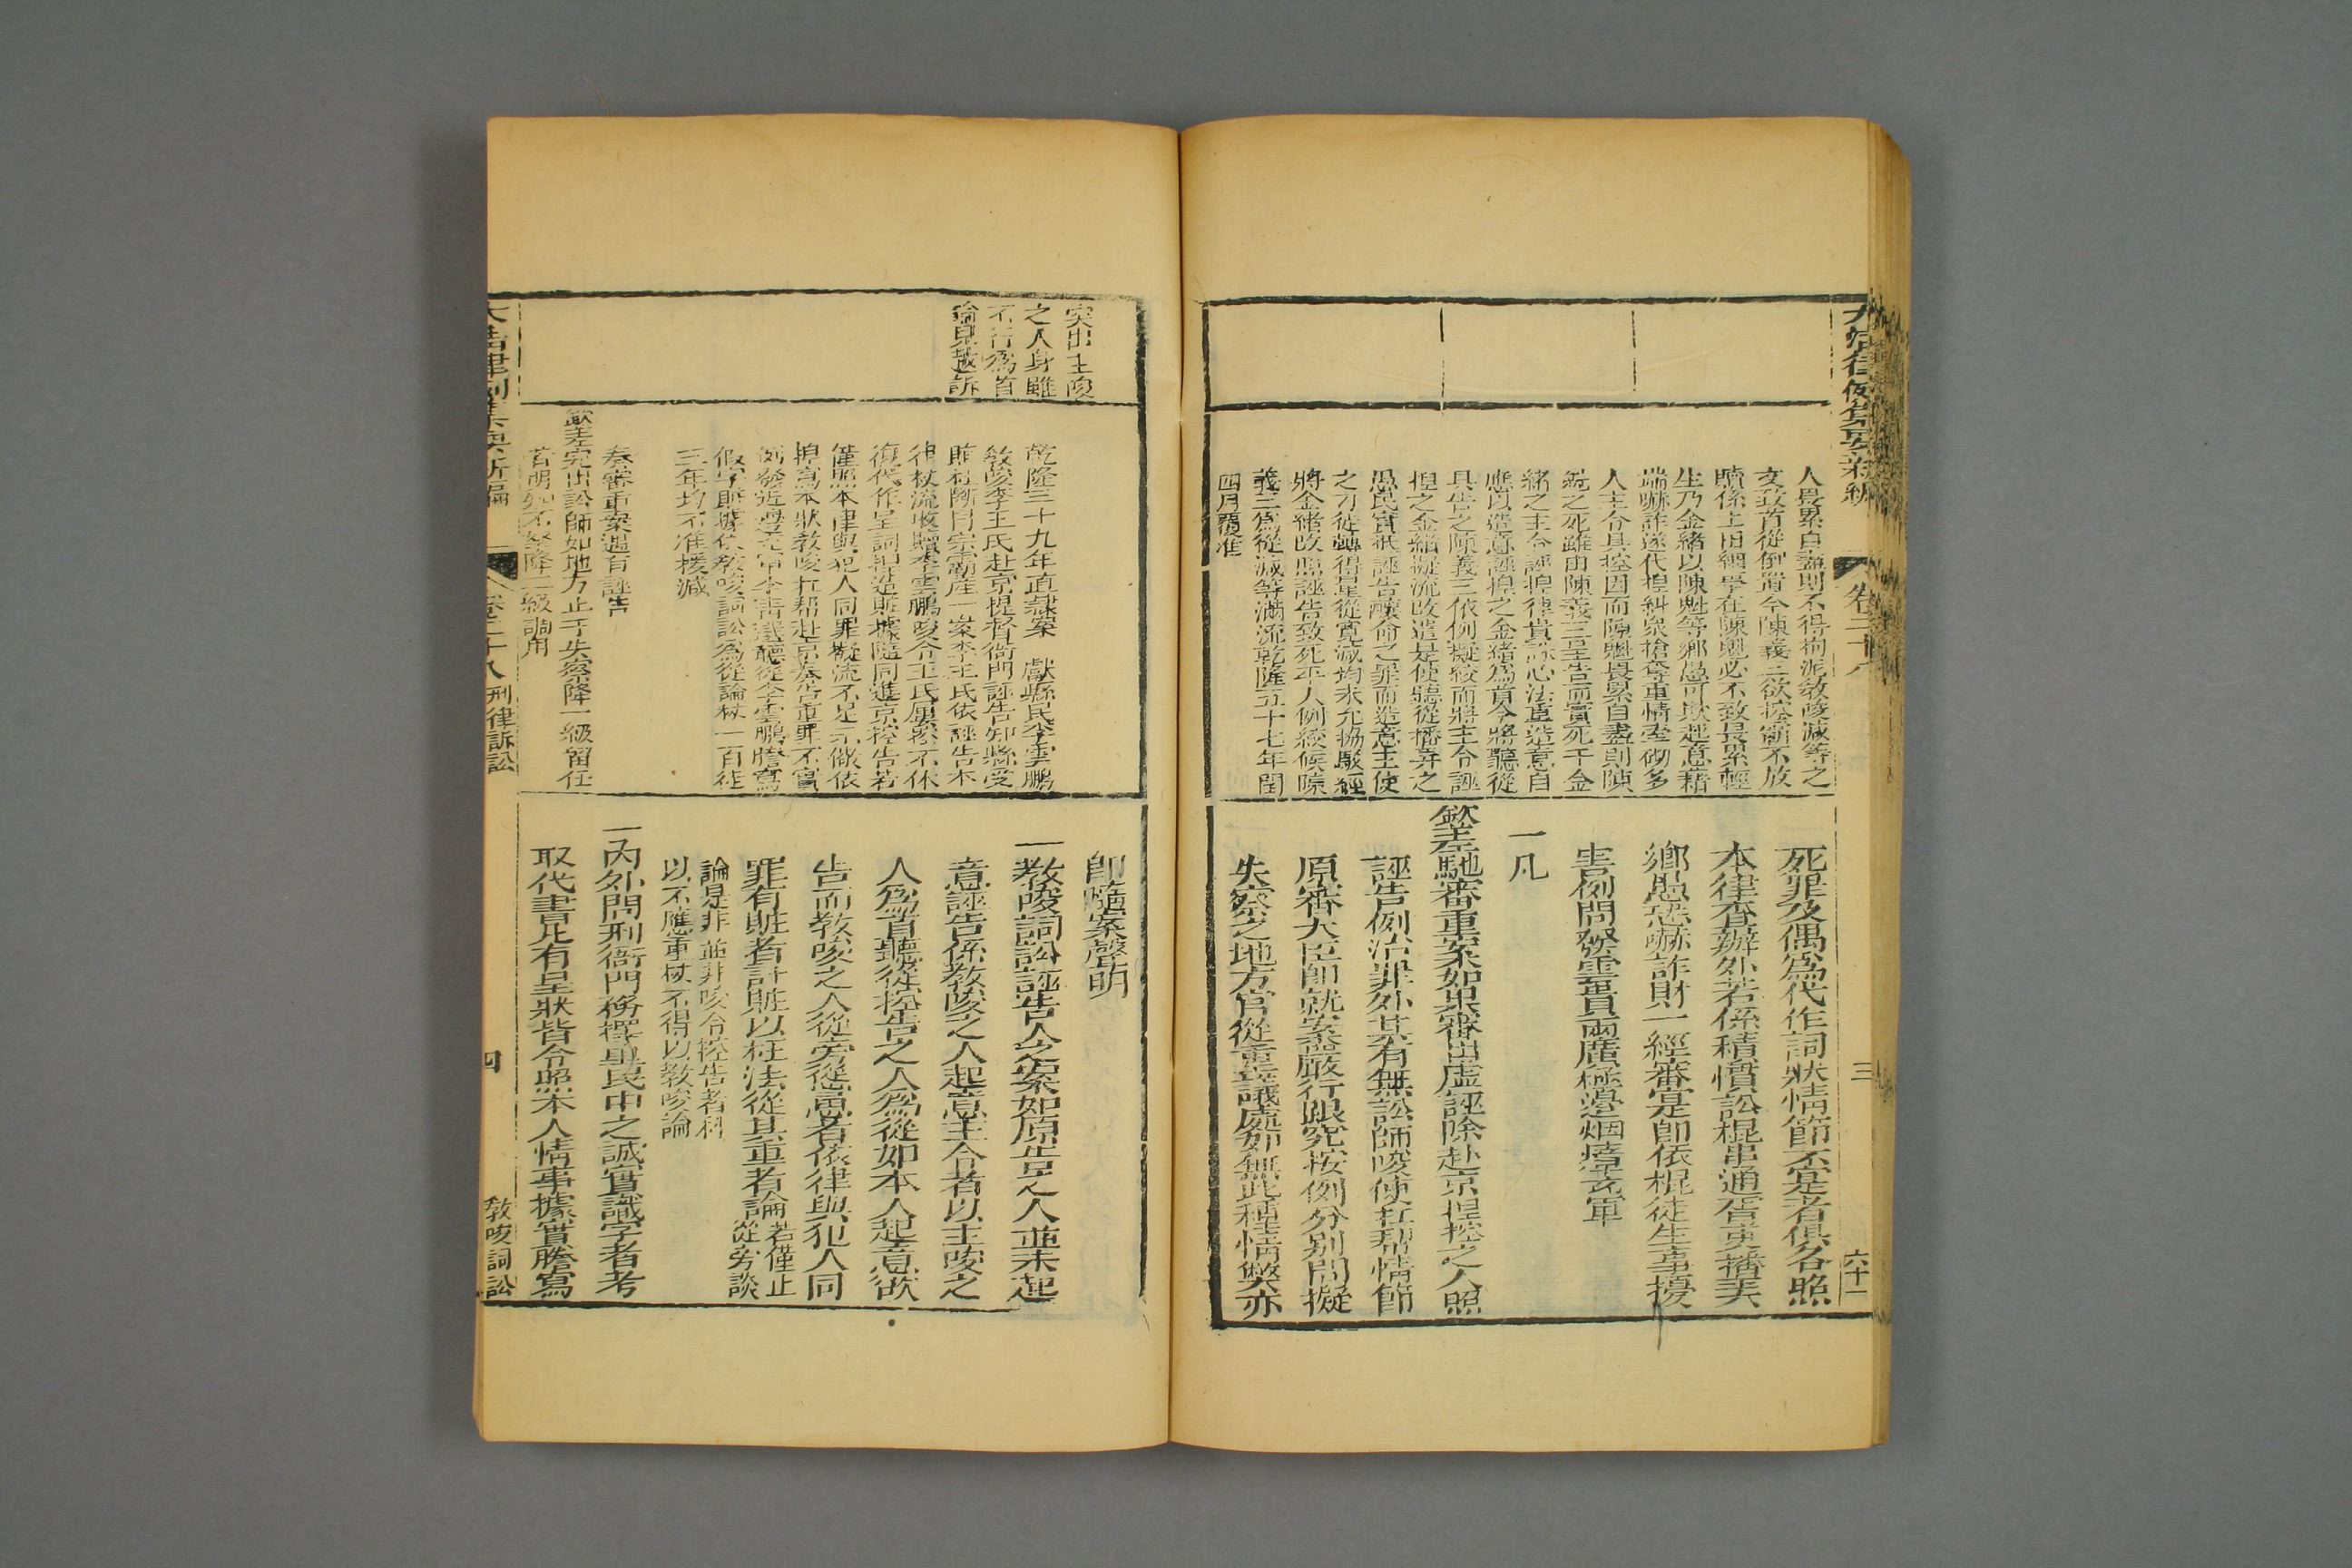 大清律例集要新編
卷二十八
三
六十一
人畏累自盡則不得拘泥教唆減等之
文致首從倒置今陳義三欲控竊不放
贖係上田細爭在陳魁必不致畏累輕
生乃金緒以陳魁等鄉愚可欺起意藉
端嚇詐遂代揑糾衆搶奪重情牽砌多
人主令具控因而陳魁畏累自盡則陳
魁之死雖由陳義三呈告而實死于金
緒之主令誣揑律貴誅心法重造意自
應以造意誣揑之金緒爲首今將聽從
具告之陳義三依例擬絞而將主令誣
揑之金緒擬流改遣是使聽從播弄之
愚民實抵誣告釀命之罪而造意主使
之刁徒轉得量從寬減均未允協駁經
將金緒改照誣告致死平人例絞候陳
義三爲從減等滿流乾隆五十七年閏
四月題准
死罪及偶爲代作詞狀情節不寔者俱各照
本律查辦外若係積慣訟棍串通胥吏播弄
鄉愚恐嚇詐財一經審寔即依棍徒生事擾
害例問發雲貴兩廣極邊烟瘴充軍
一凡
欽差馳審重案如果審出虛誣除赴京揑控之人照
誣告例治罪外其有無訟師唆使扛幫情節
原審大臣即就案嚴行跟究按例分別問擬
失察之地方官從重議處如無此種情弊亦
究出主唆
之人身雖
不行爲首
論見越訴
乾隆三十九年直隸案 獻縣民李雲鵬
教唆李王氏赴京提督衙門誣告知縣受
賍枉斷目宗霸産一案李王氏依誣告本
律杖流收贖李雲鵬唆令王氏屢控不休
復代作呈詞揑造賍據隨同進京控告若
僅照本律與犯人同罪擬流不足示儆依
揑寫本狀教唆扛幫赴京奏告重罪不實
例發近邊充軍李青選聽從李雲鵬謄寫
假字賍據依教唆詞訟爲從論杖一百徒
三年均不准援減
奉審重案遇有誣告
欽差究出訟師如地方止于失察降一級留任
若明知不拏降二級調用
即隨案聲明
一教唆詞訟誣告人之案如原告之人並未起
意誣告係教唆之人起意主令者以主唆之
人爲首聽從控告之人爲從如本人起意欲
告而教唆之人從旁慫恿者依律與犯人同
罪有賍者計賍以枉法從其重者論若僅止從旁談
論是非並非唆令控告者科
以不應重杖不得以教唆論
一內外問刑衙門務擇里民中之誠實識字者考
取代書凡有呈狀皆令照本人情事據實謄寫
大清律例集要新編
卷二十八 刑律訴訟
四
教唆詞訟